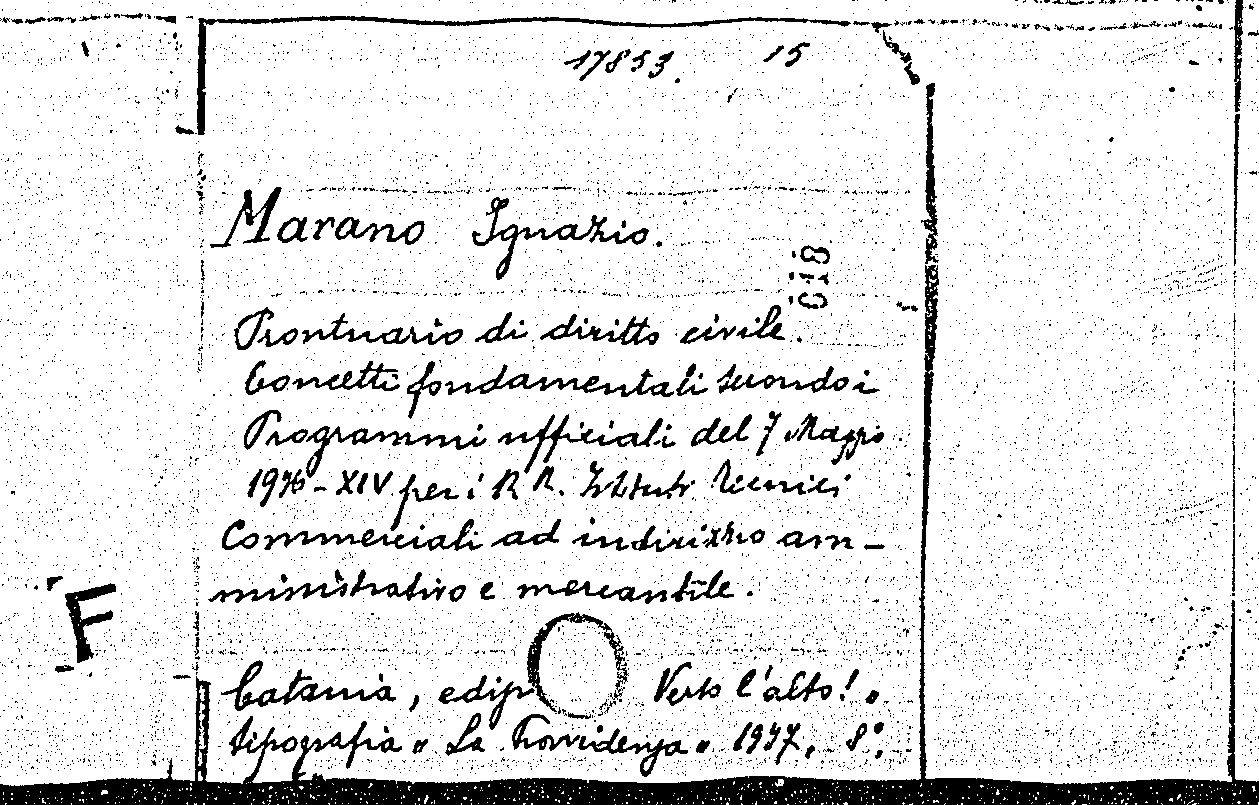 17853. 15
Marano Ignazio.
618
Prontuario di diritto civile.
Concetti fondamentali secondo i
Programmi ufficiali del 7 Maggio
1936-XIV per i RR. Istituti Tecnici
Commerciali ad indirizzo am-
ministrativo e mercantile.
F
Catania, edip Verso l'alto! "
tipografia " La Provvidenza " 1937, 8°.